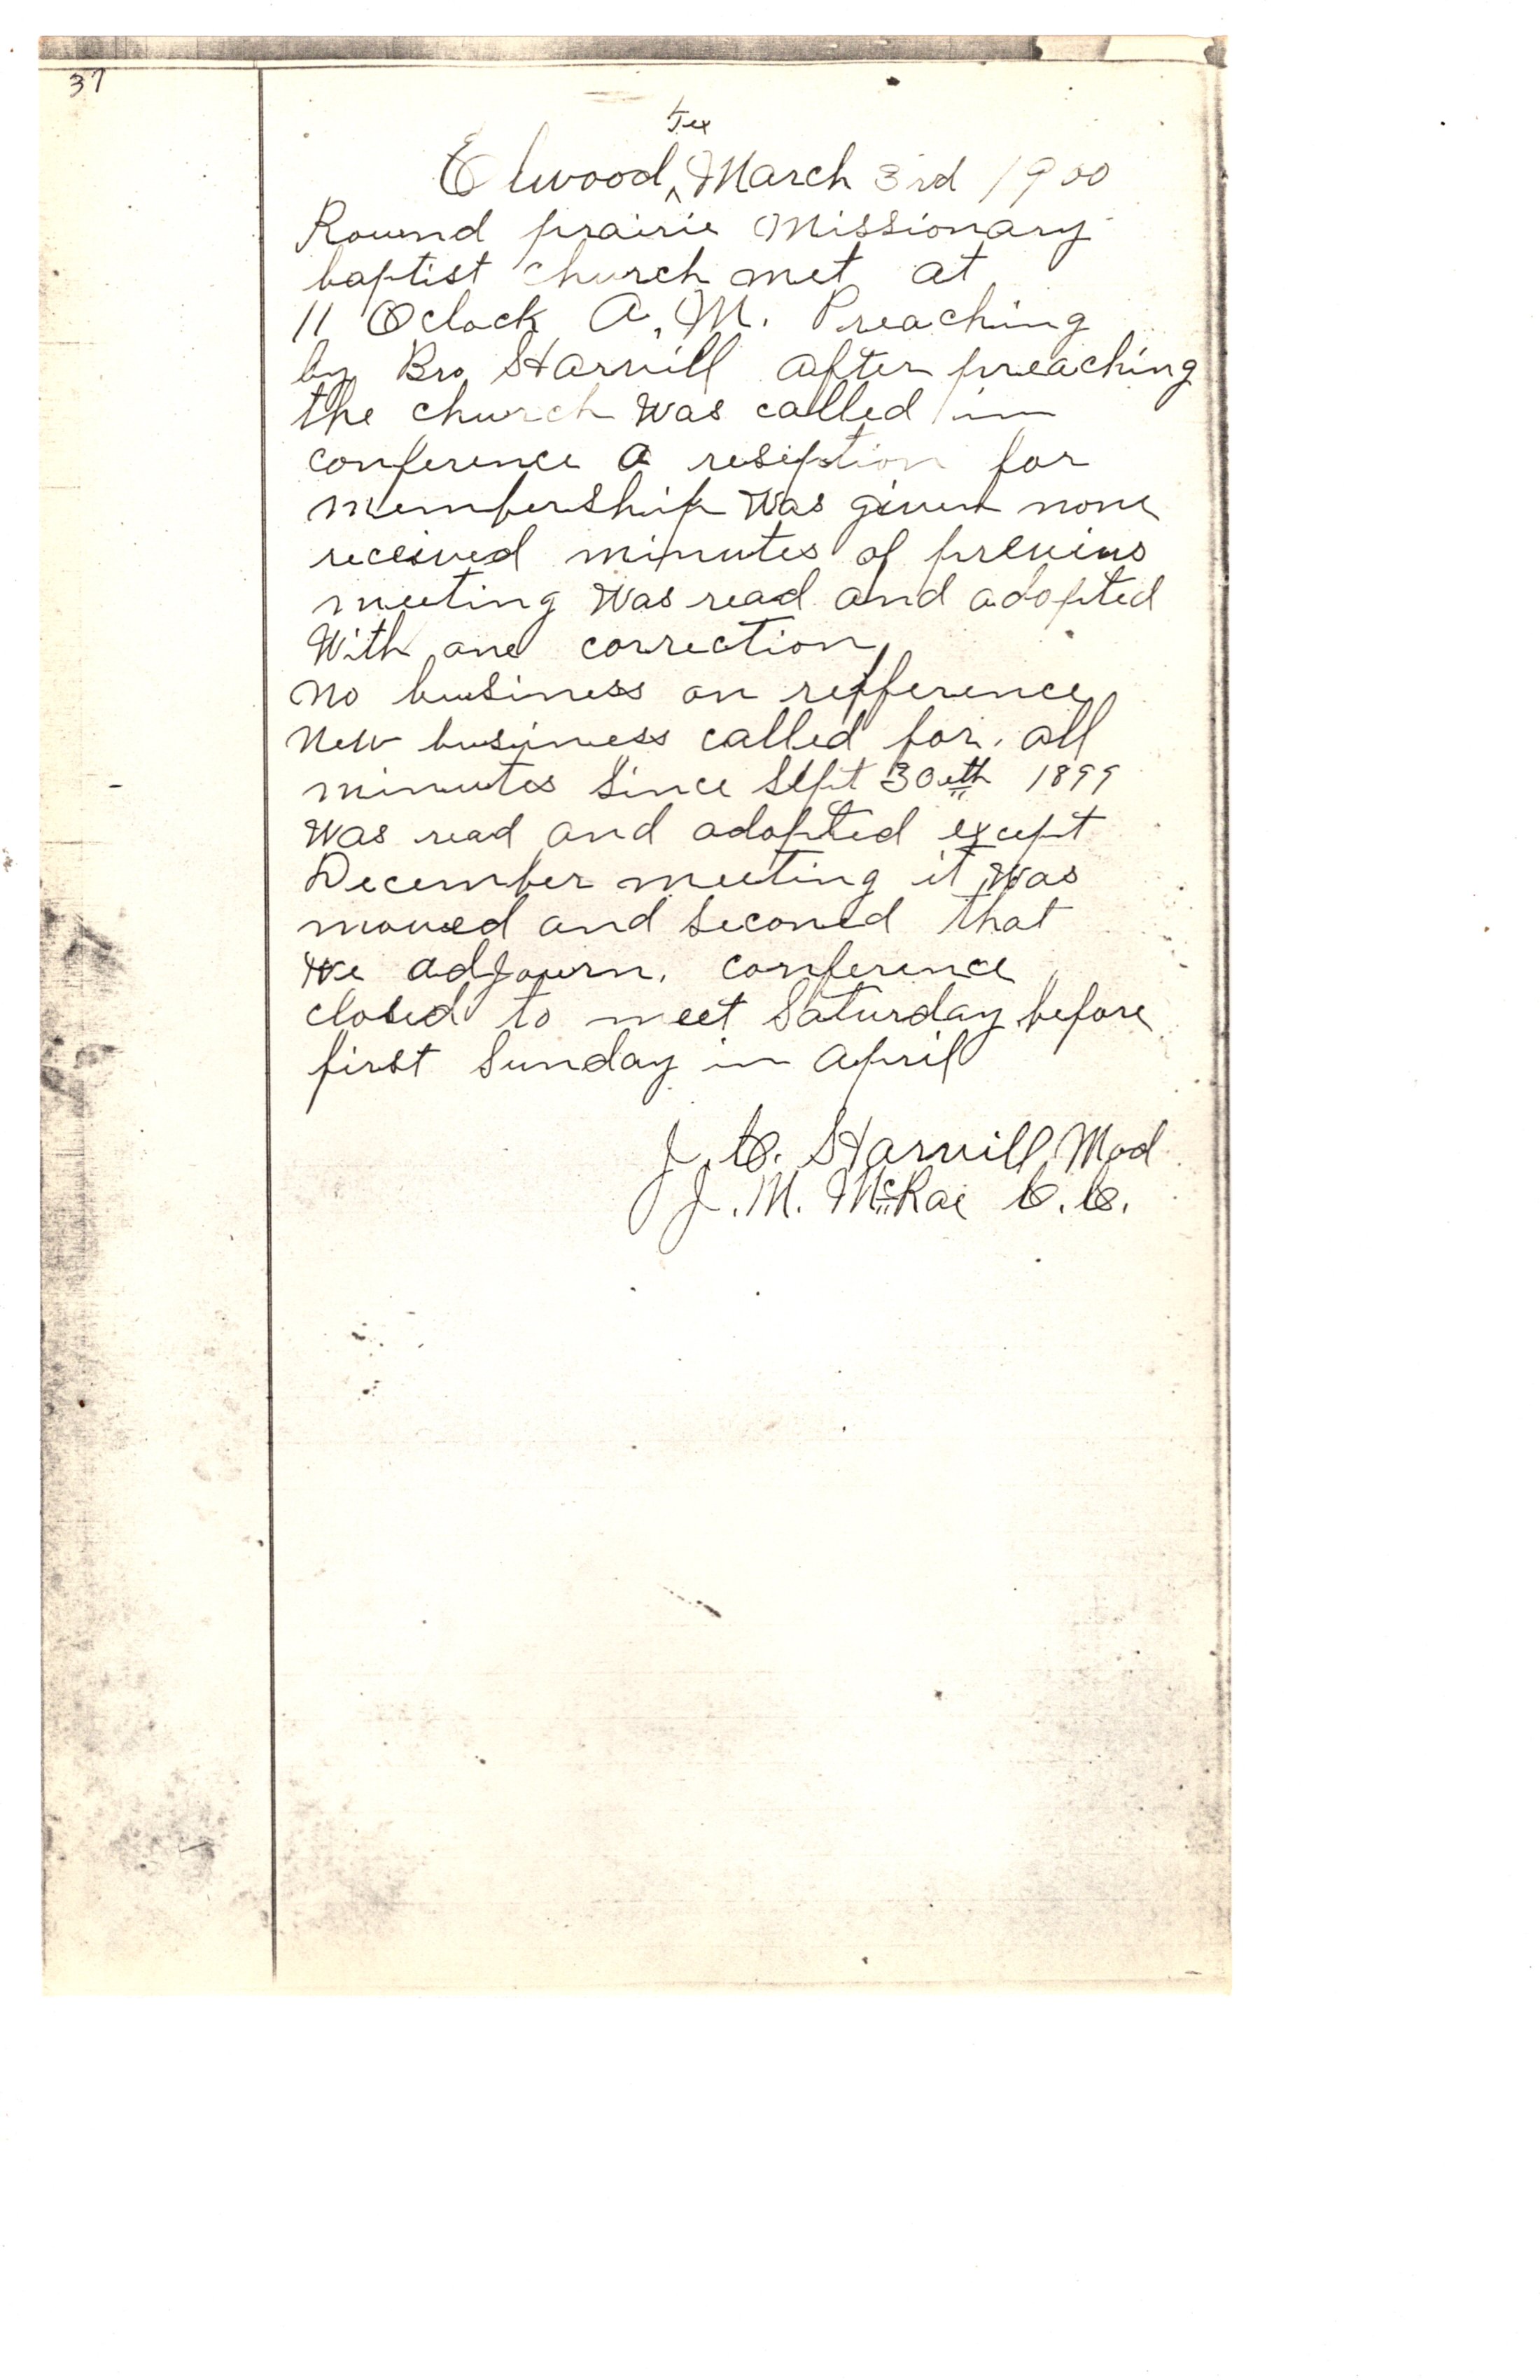 37
Tex
Elwood ^ March 3rd 1900
Round prairie Missionary
baptist church met at
11 Oclock A, M. Preaching
by Bro Harvill after preaching
the church was called in
conference a reseption for
membership was given none
received minutes of previus
meeting was read and adopted
With one correction,
no business on refference
new business called for. all
minutes since Sept 30eth 1899
was read and adopted except
December meeting it was
moved and seconed that
we adjourn. conference
closed to meet Saturday before
first Sunday in April
J. C. Harvill Mod
J. M. McRae C. C.